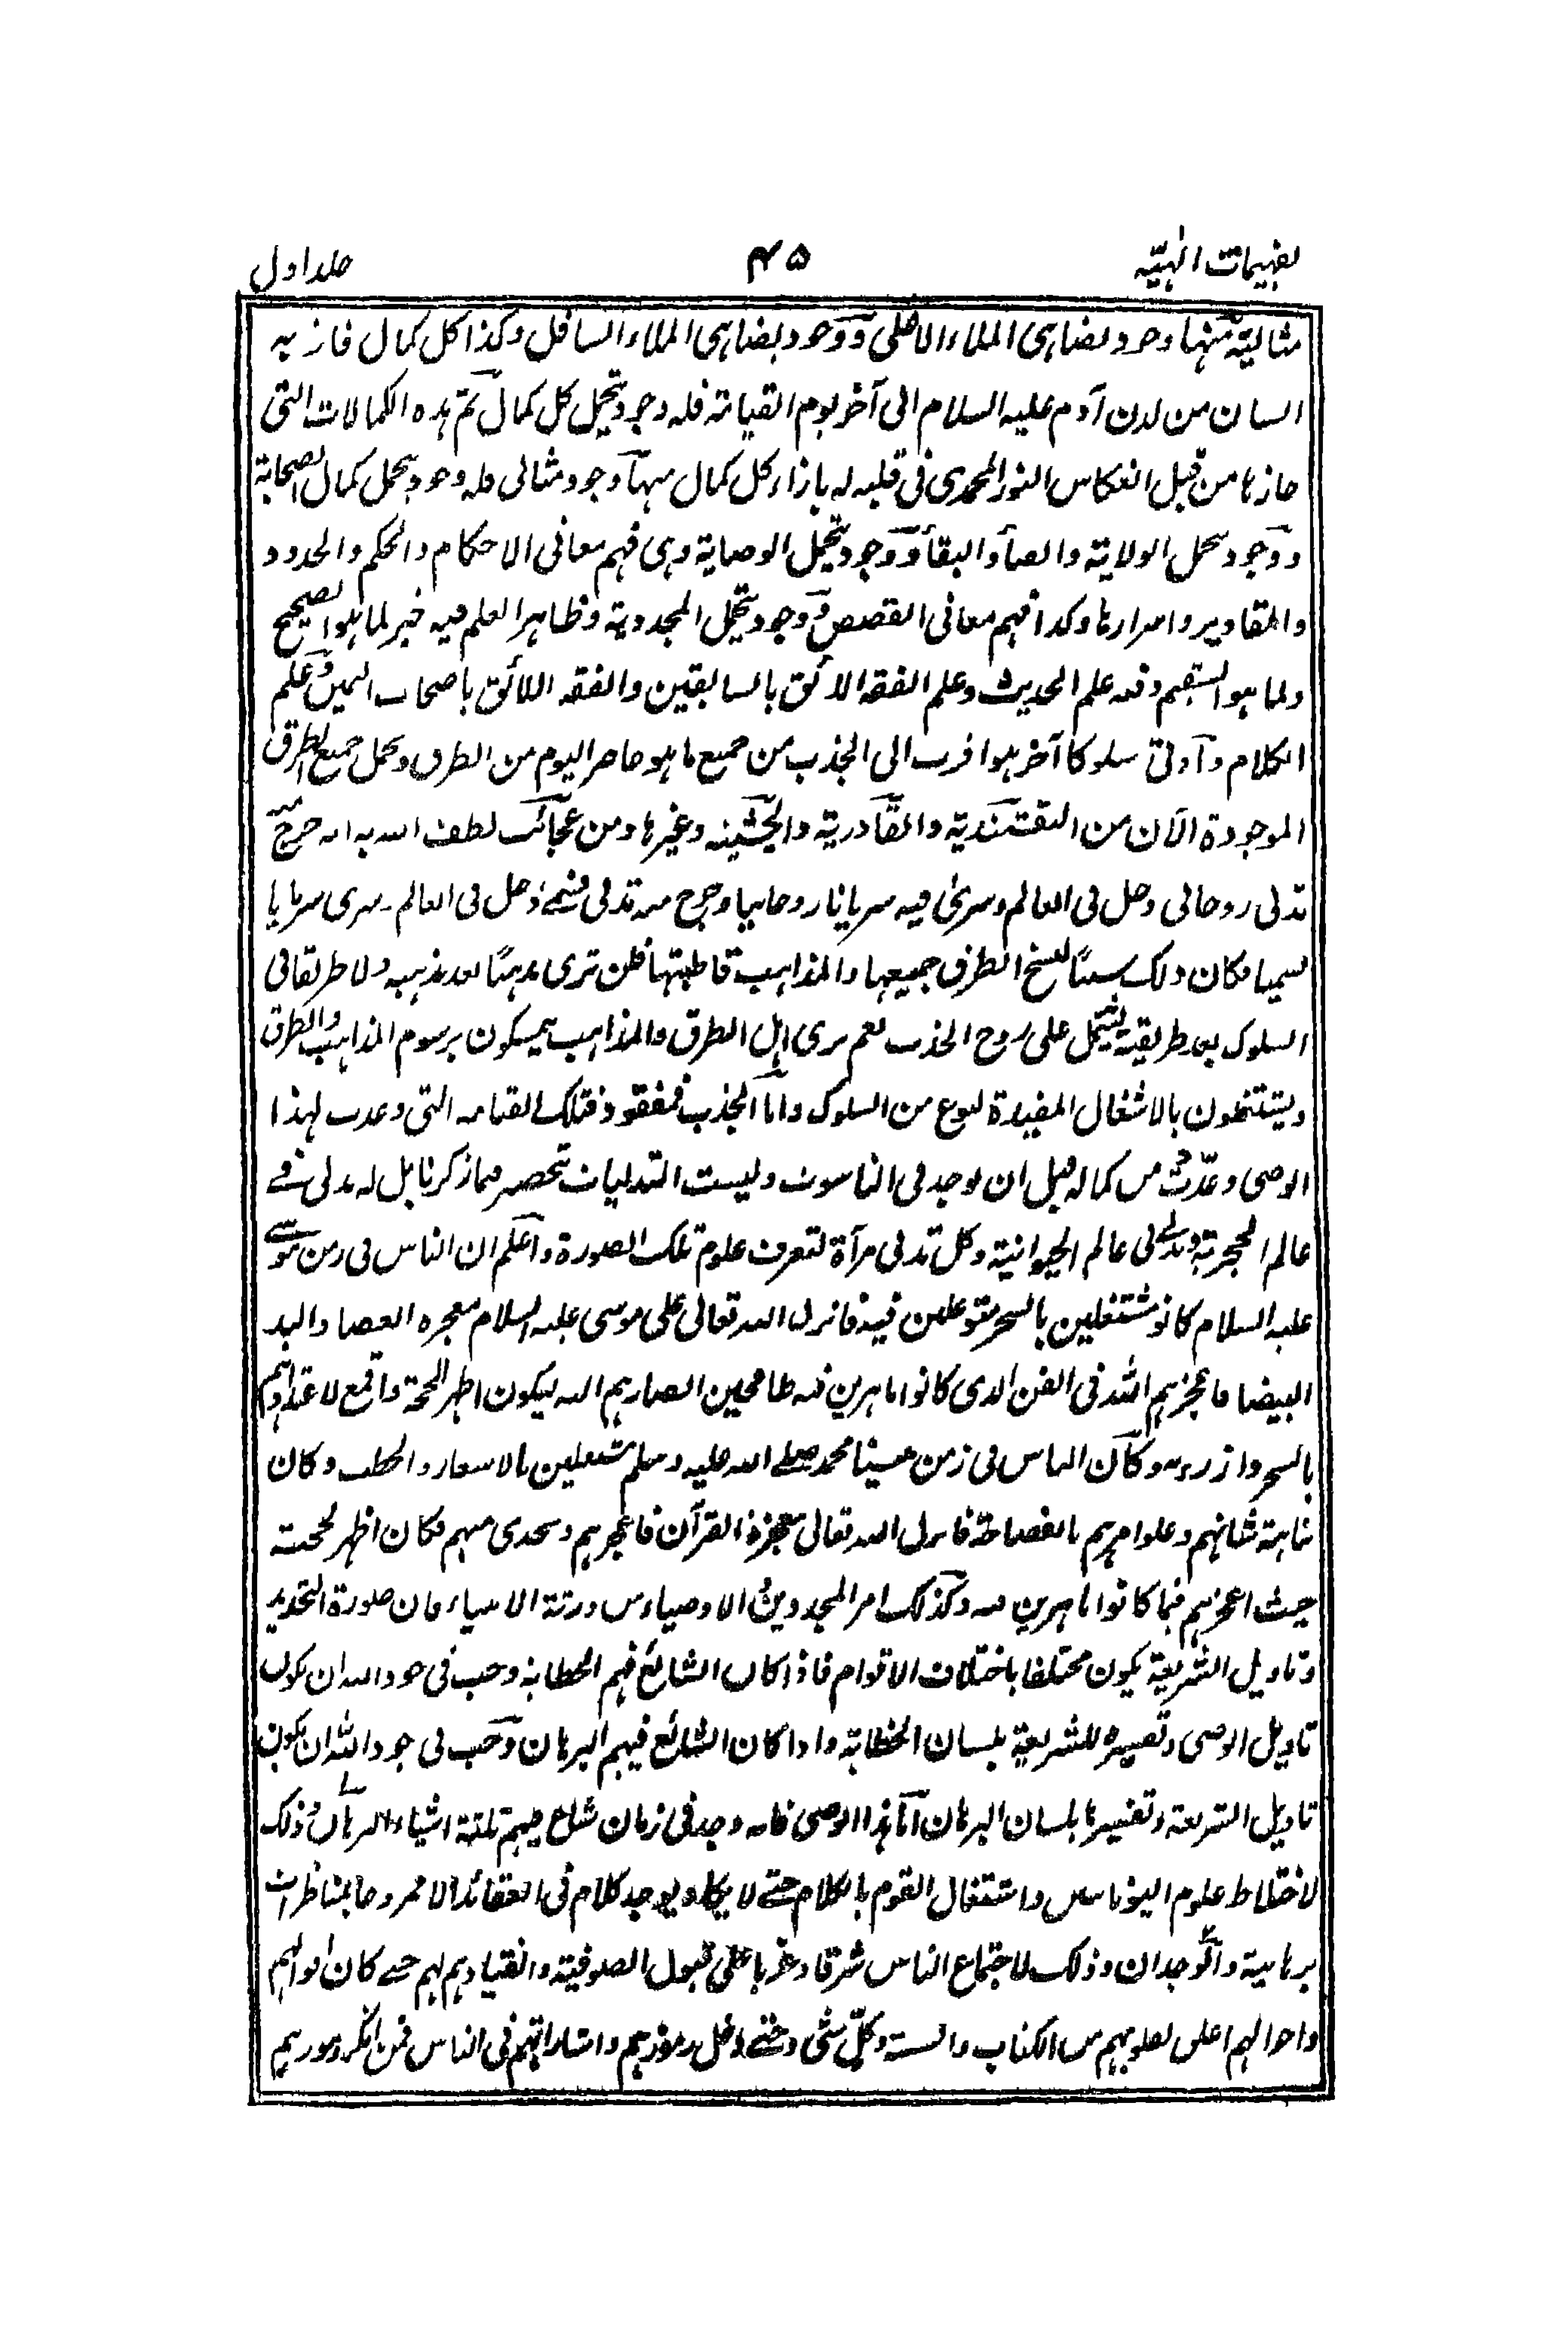 تفہیمات الٰہیّہ ۴۵ جلد اول
مثالیة منہا وجود یضاہی الملاء الاعلی ووجود یضاہی الملاء السافل وکذا کل کمال فاز بہ
انسان من لدن آدم علیہ السلام الی آخر یوم القیامۃ فلہ وجود یتحمل کل کمال ثم ہذہ الکمالات التی
حازہا من قبل انعکاس النور المحمدی فی قلبہ لہ بازاء کل کمال منہا وجود مثالی فلہ وجود یتحمل کمال الصحابۃ
ووجود یتحمل الولایۃ والفنأ والبقأ ووجود یتحمل الوصایة وہی فہم معانی الاحکام والحکم والحدود
والمقادیر واسرارہا وکذا فہم معانی القصص ووجود یتحمل المجددیة وظاہر العلم فیہ خبر لما ہو الصحیح
ولما ہو السقیم وفیہ علم الحدیث وعلم الفقہ الالئق بالسابقین والفقہ اللائق باصحاب الیمین وعلم
الکلام وآوتی سلوکا آخر ہو اقرب الی الجذب من جمیع ما ہو حاضر الیوم من الطرق ویحمل جمیع الطرق
الموجودة الآن من النقشبندیة والقادریة والچشتیہ وغیرہا ومن عجائب لطف اللہ بہ انہ خرج منہ
تدلی روحانی دخل فی العالم وسریٰ فیہ سریانا روحانیا وخرج منہ تدلی نسمی دخل فی العالم وسری سریانا
نسمیا فکان ذلک سببًا لنسخ الطرق جمیعہا والمذاہب قاطبتہا فلن تری مذہبًا بعد مذہبہ ولا طریقا فی
السلوک بعد طریقتہ یشتمل علی روح الجذب نعم یری اہل الطرق والمذاہب یمسکون برسوم المذاہب والطرق
ویشتغلون بالاشغال المفیدة لنوع من السلوک واما الجذب فمفقود فتلک القیامہ التی وعدت لہذا
الوصی وعدّت من کمالہ قبل ان یوجد فی الناسوت ولیست التدلیات تنحصر فیما ذکرنا بل لہ تدلی فی
عالم الحجریۃ وتدلی فی عالم الحیوانیة وکل تدلی مرآة لتعرف علوم تلک الصورة واعلم ان الناس فی زمن موسے
علیہ السلام کانو مشتغلین بالسحر متوغلین فیہ فانزل اللہ تعالی علی موسی علیہ السلام معجزہ العصا والید
البیضا فاعجزہم اللہ فی الفن الذی کانوا ماہرین فیہ طامحین ابصارہم الیہ لیکون اظہر للحجۃ واقمع لاعتدادہم
بالسحر وازرء بہ وکان الناس فی زمن سیدنا محمد صلے اللہ علیہ وسلم مشتغلین بالاشعار والخطب وکان
نباہۃ شانہم وعلو امرہم بالفصاحۃ فانزل اللہ تعالی معجزة القرآن فاعجزہم وتحدی منہم فکان اظہر لحجتہ
حیث اعجزہم فیما کانوا ماہرین فیہ وکذلک امر المجددین الاوصیاء من ورثة الانبیاء فان صورة التجدید
وتاویل الشریعة یکون مختلفا باختلاف الاقوام فاذا کان الشائع فیہم الخطابۃ وجب فی جود اللہ ان یکون
تاویل الوصی وتفسیرہ للشریعة بلسان الخطابة واذا کان الشائع فیہم البرہان وجب فی جود اللہ ان یکون
تاویل الشریعة وتفسیرہا بلسان البرہان اما ہذا الوصی فانہ وجد فی زمان شاع فیہم ثلثة اشیاء البرہان وذلک
لاختلاط علوم الیونانیین واشتغال القوم بالکلام حتے لا یکاد یوجد کلام فی العقائد الا ممزوجا بمناظرات
برہانیة والوجدان وذلک لاجتماع الناس شرقا وغربا علی قبول الصوفیة وانقیادہم لہم حتے کان اقوالہم
واحوالہم اعلق بقلوبہم من الکتاب والسنة وکل شئ وحتے دخل رموزہم واشاراتہم فی الناس فمن انکر رموزہم